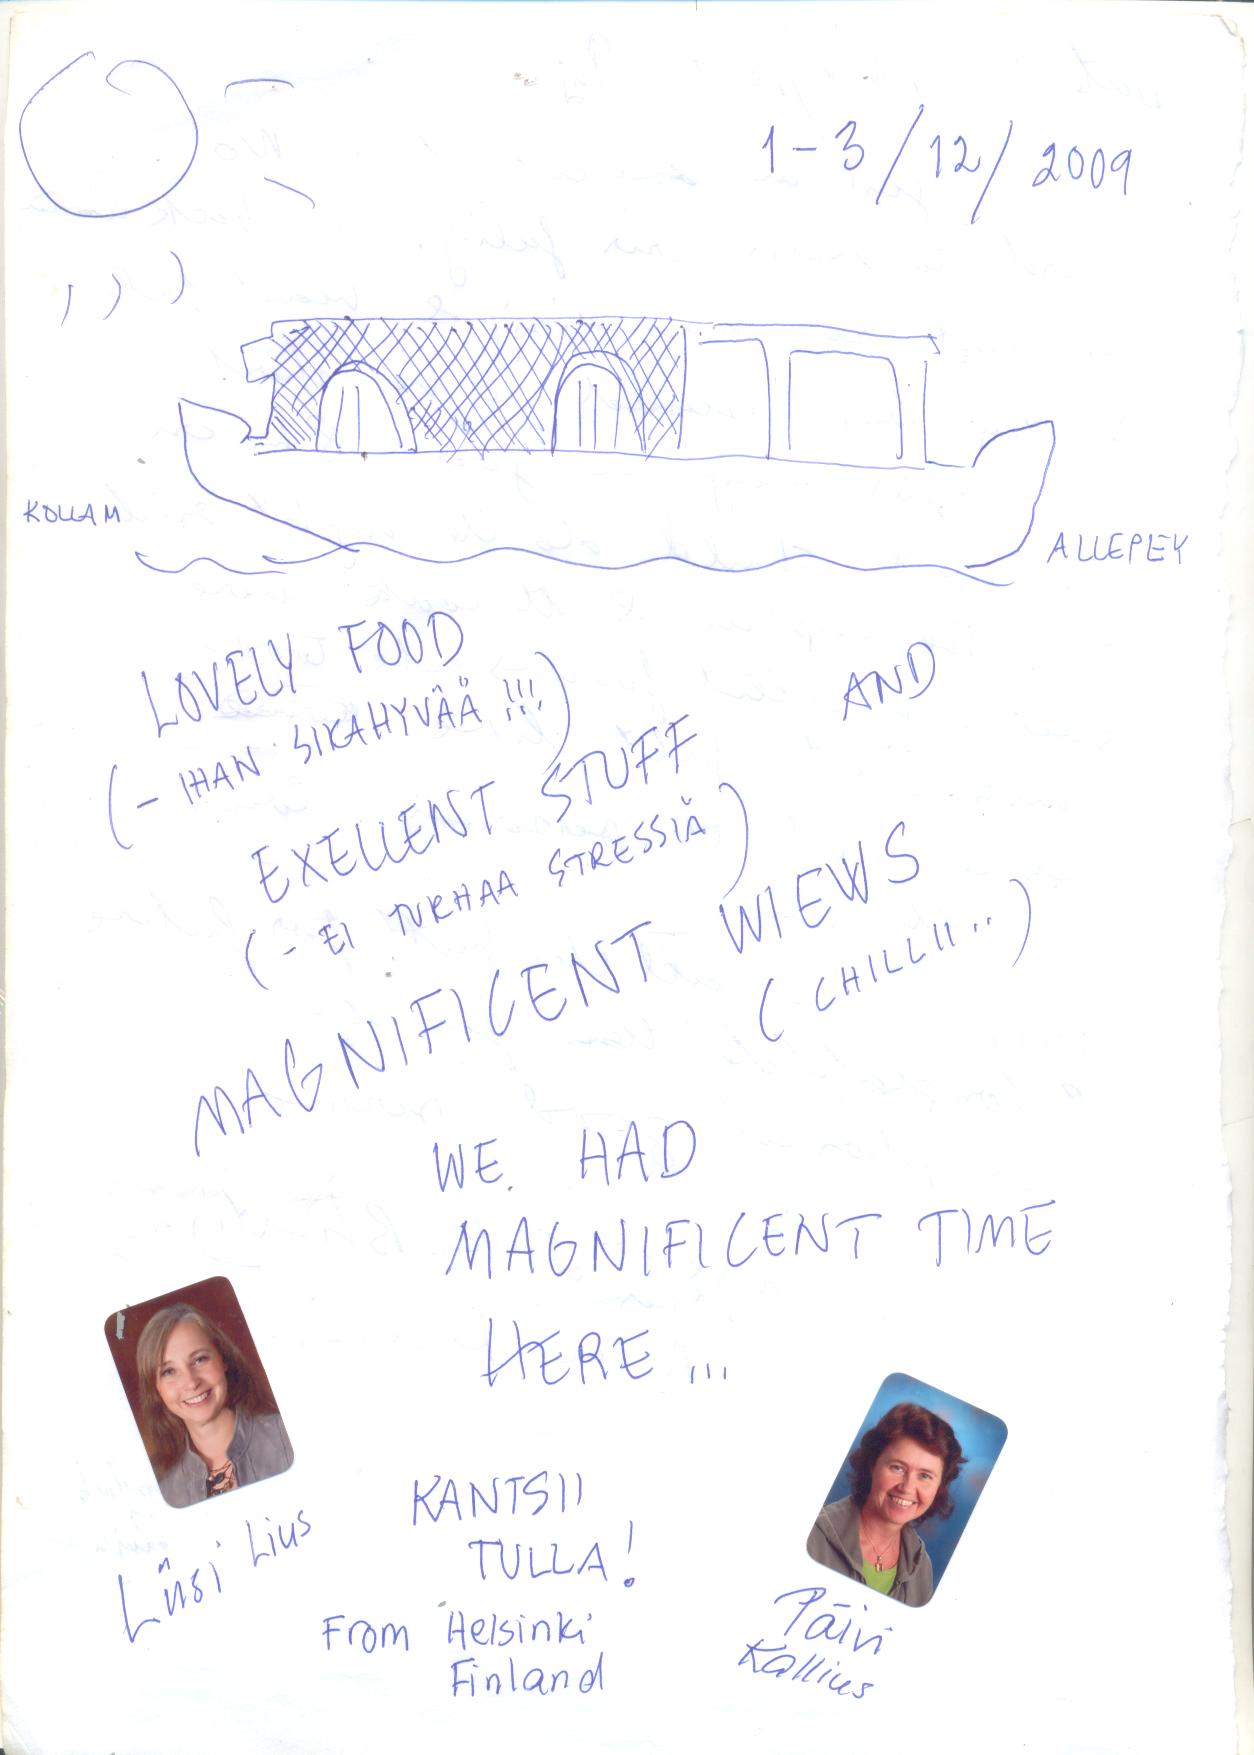 1-3/12/2009
KOLLAM
ALLEPEY
LOVELY FOOD
(- IHAN SIKAHYVÄÄ !!!)
AND
EXELLENT STUFF
(- EI TURHAA STRESSIÄ)
MAGNIFICENT WIEWS
(CHILLII..)
WE HAD
MAGNIFICENT TIME
HERE ...
KANTSII
TULLA!
From Helsinki
Finland
Liisi Lius
Päivi
Kallius